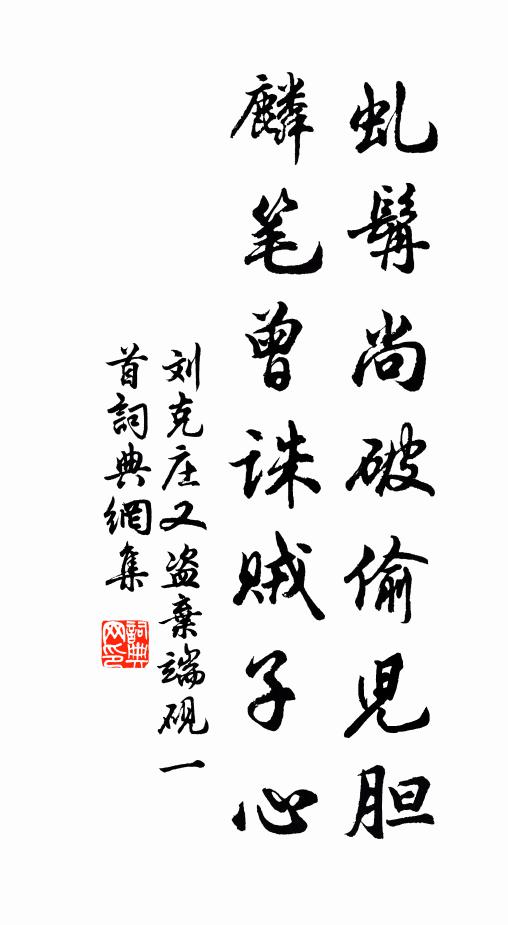 虬髯尚破偷儿胆
麟笔曾诛贼子心
刘克庄又盗弃端砚一
首詞典網集
詞典网印